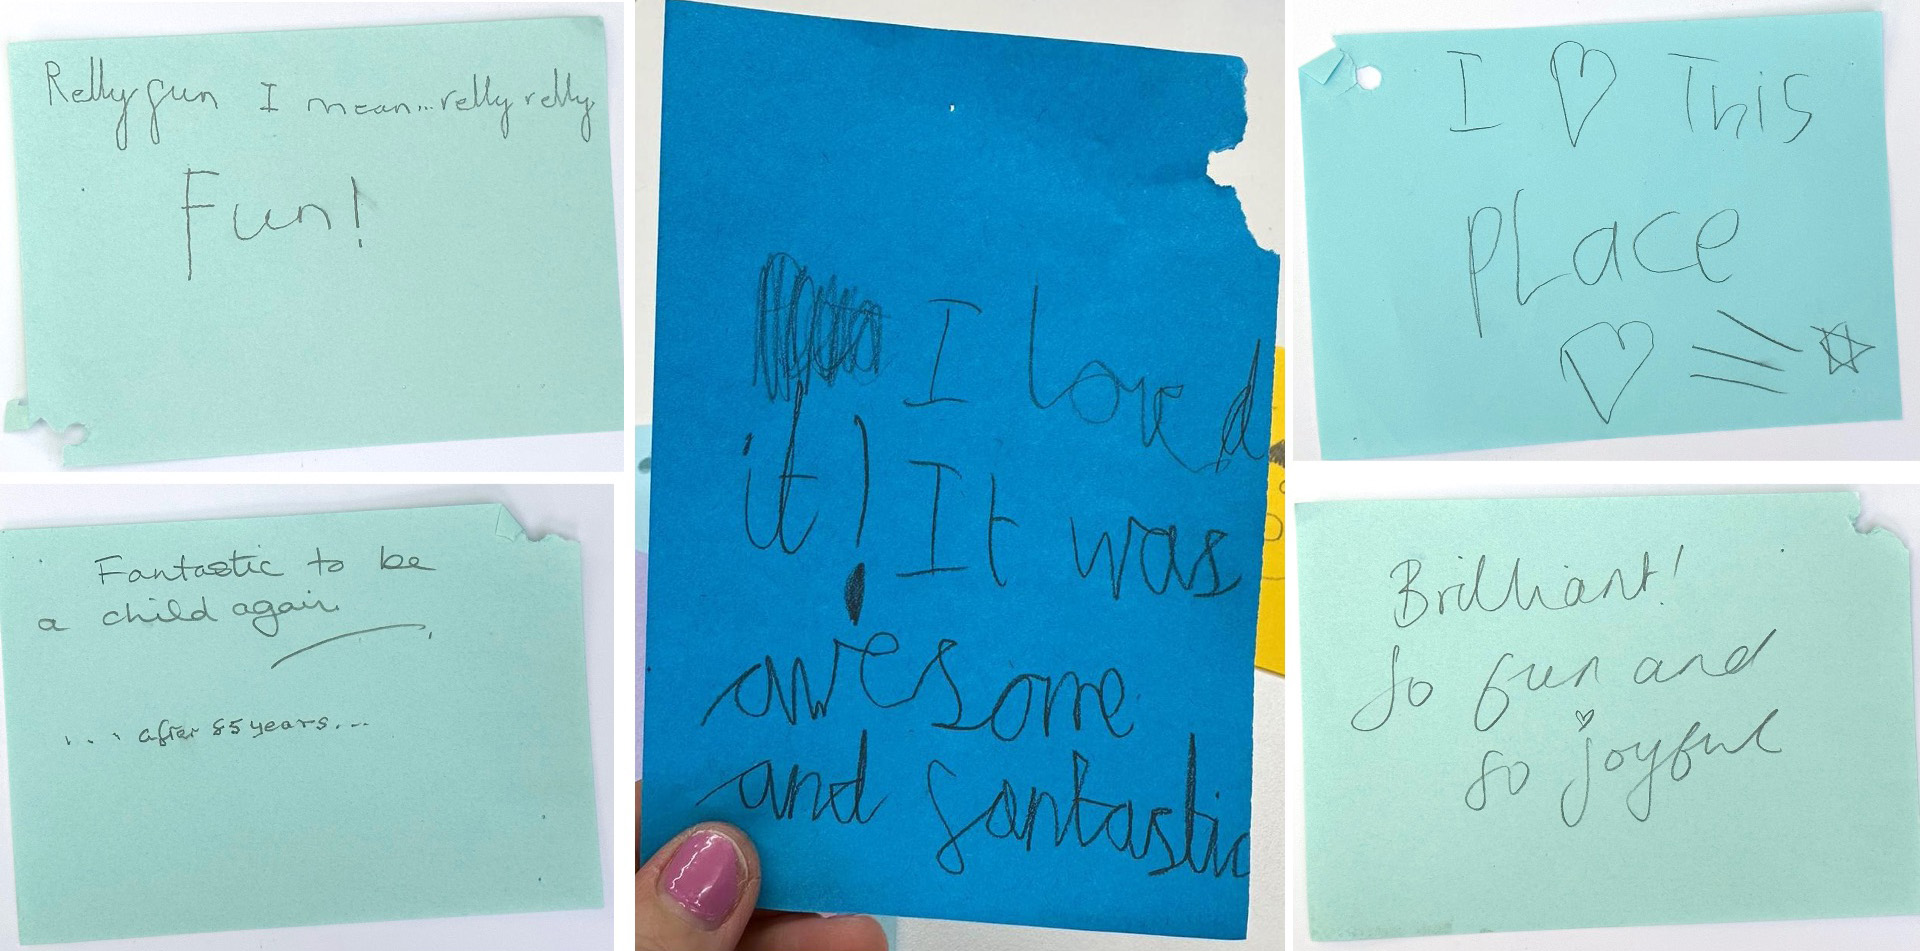 Relly fun I mean... relly relly
Fun!
Fantastic to be
a child again.
... after 85 years...
I loved
it! It was
awesome
and fantastic
I ♡ This
pLace
♡
Brilliant!
So fun and
so joyful